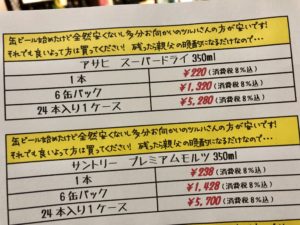 缶ビール始めたけど全然安くないし多分お向かいのツルハさんの方が安いです!
それでも良いよって方は買ってください! 残ったら親父の晩酌になるだけなので・・・
アサヒ スーパードライ 350ml
1本 ¥220(消費税8%込)
6缶パック ¥1,320(消費税8%込)
24本入り1ケース ¥5,280(消費税8%込)
缶ビール始めたけど全然安くないし多分お向かいのツルハさんの方が安いです!
それでも良いよって方は買ってください! 残ったら親父の晩酌になるだけなので・・・
サントリー プレミアムモルツ 350ml
1本 ¥238(消費税8%込)
6缶パック ¥1,428(消費税8%込)
24本入り1ケース ¥5,700(消費税8%込)